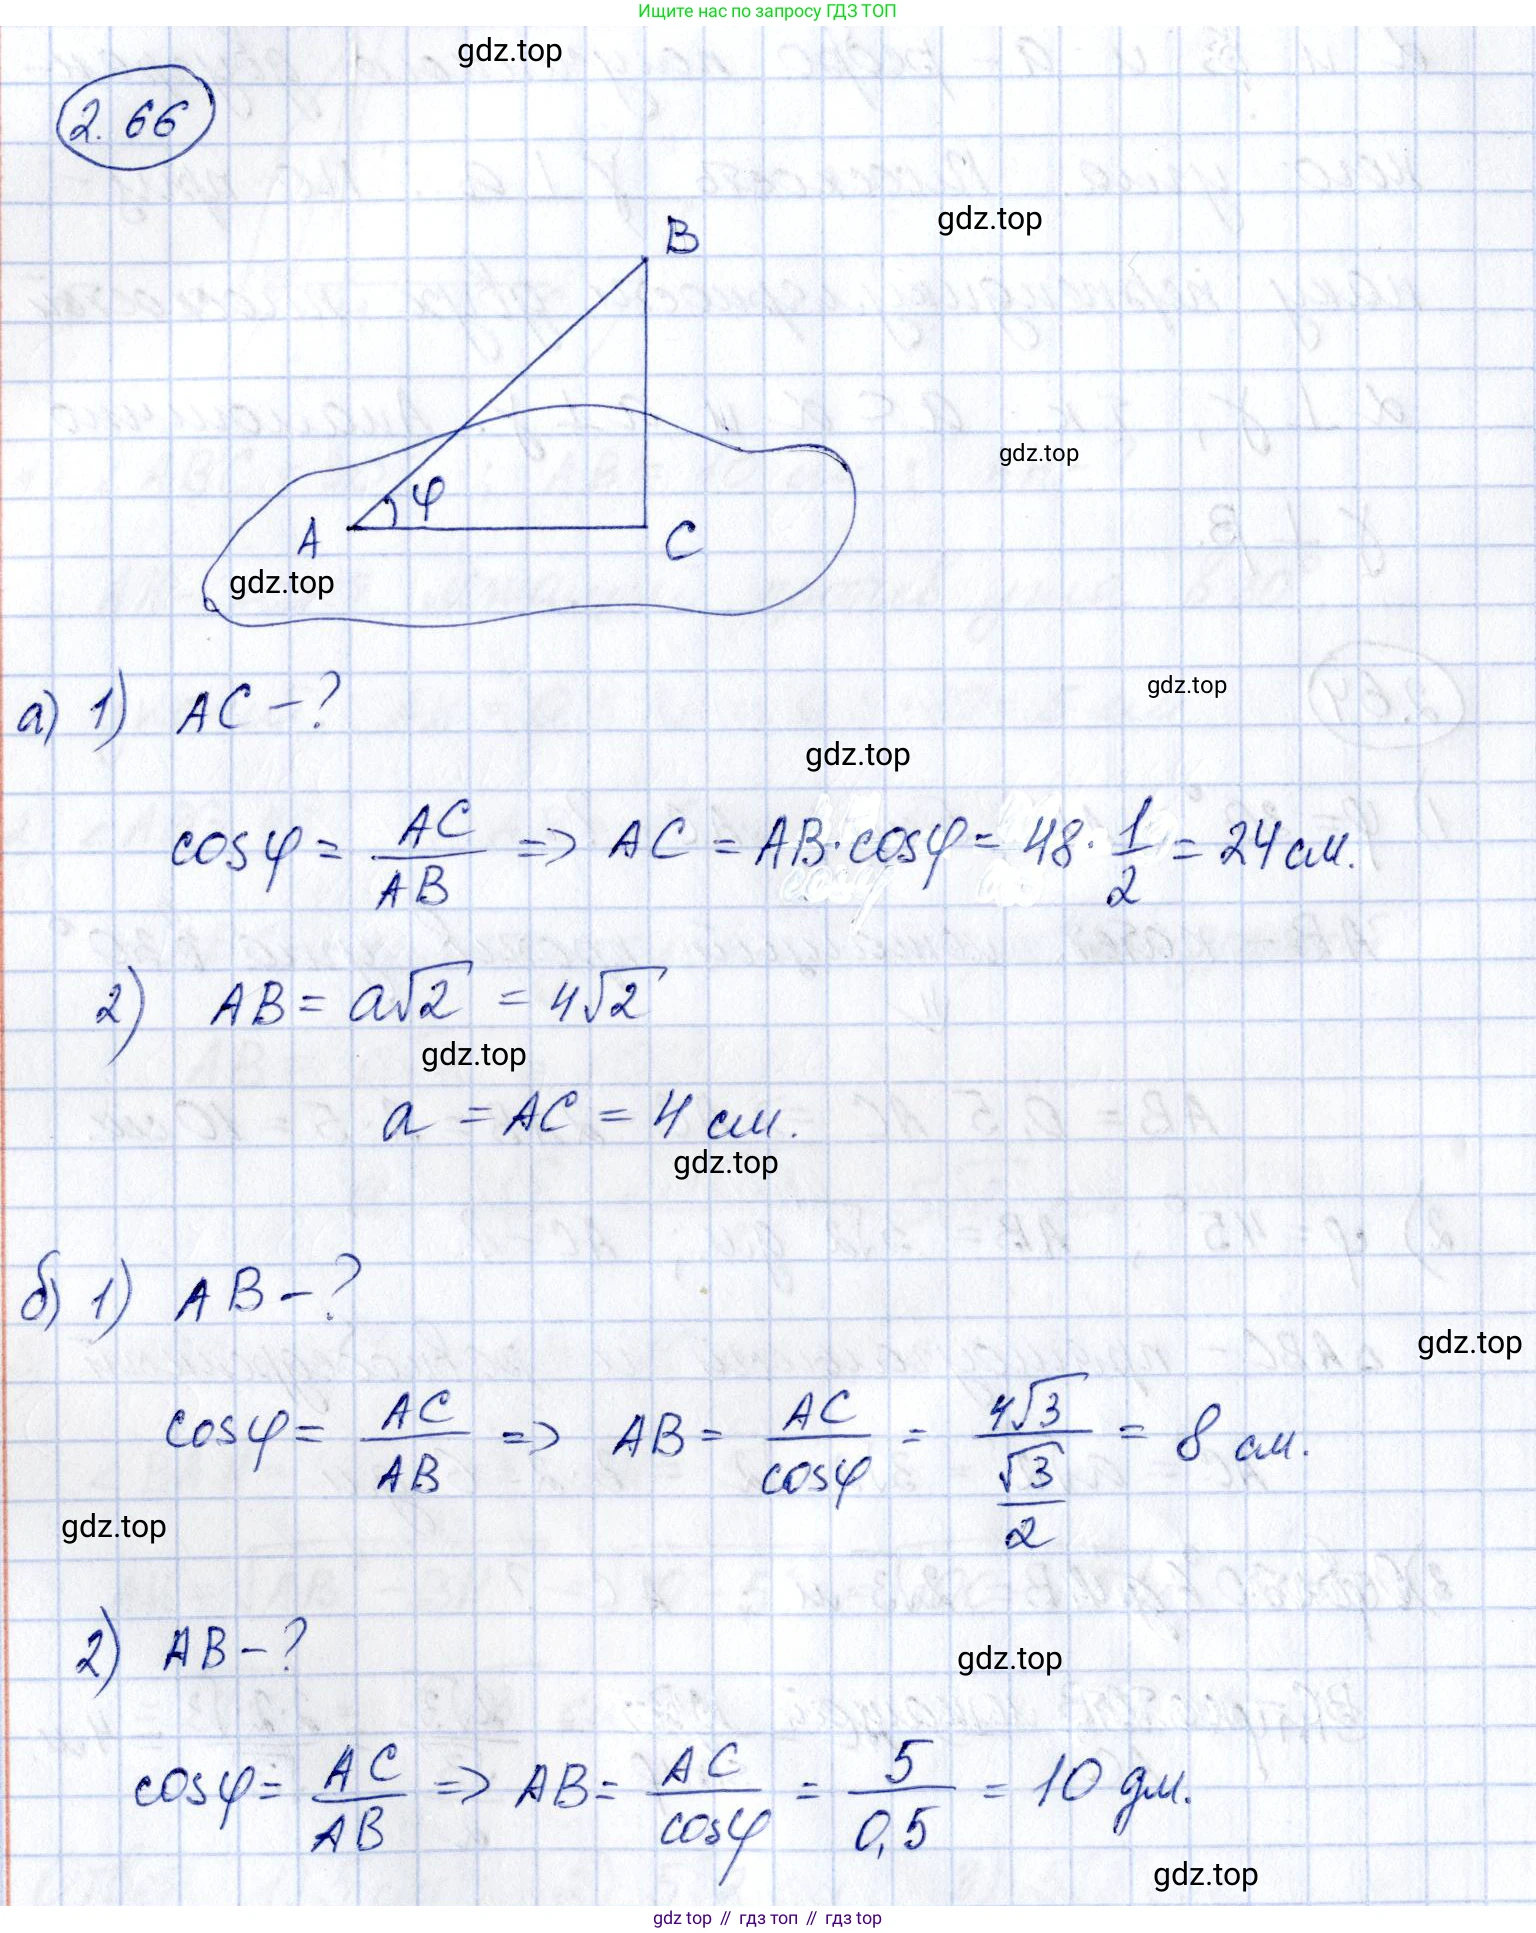 Ищите нас по запросу ГДЗ ТОП
gdz.top
2.66
gdz.top
B
gdz.top
φ
A
C
gdz.top
а) 1) AC - ?
gdz.top
gdz.top
cosφ = AC/AB => AC = AB·cosφ = 48 · 1/2 = 24 см.
2) AB = a√2 = 4√2
gdz.top
a = AC = 4 см.
gdz.top
б) 1) AB - ?
gdz.top
cosφ = AC/AB => AB = AC/cosφ = 4√3/(√3/2) = 8 см.
gdz.top
2) AB - ?
gdz.top
cosφ = AC/AB => AB = AC/cosφ = 5/0,5 = 10 дм.
gdz.top
gdz top // гдз топ // гдз top